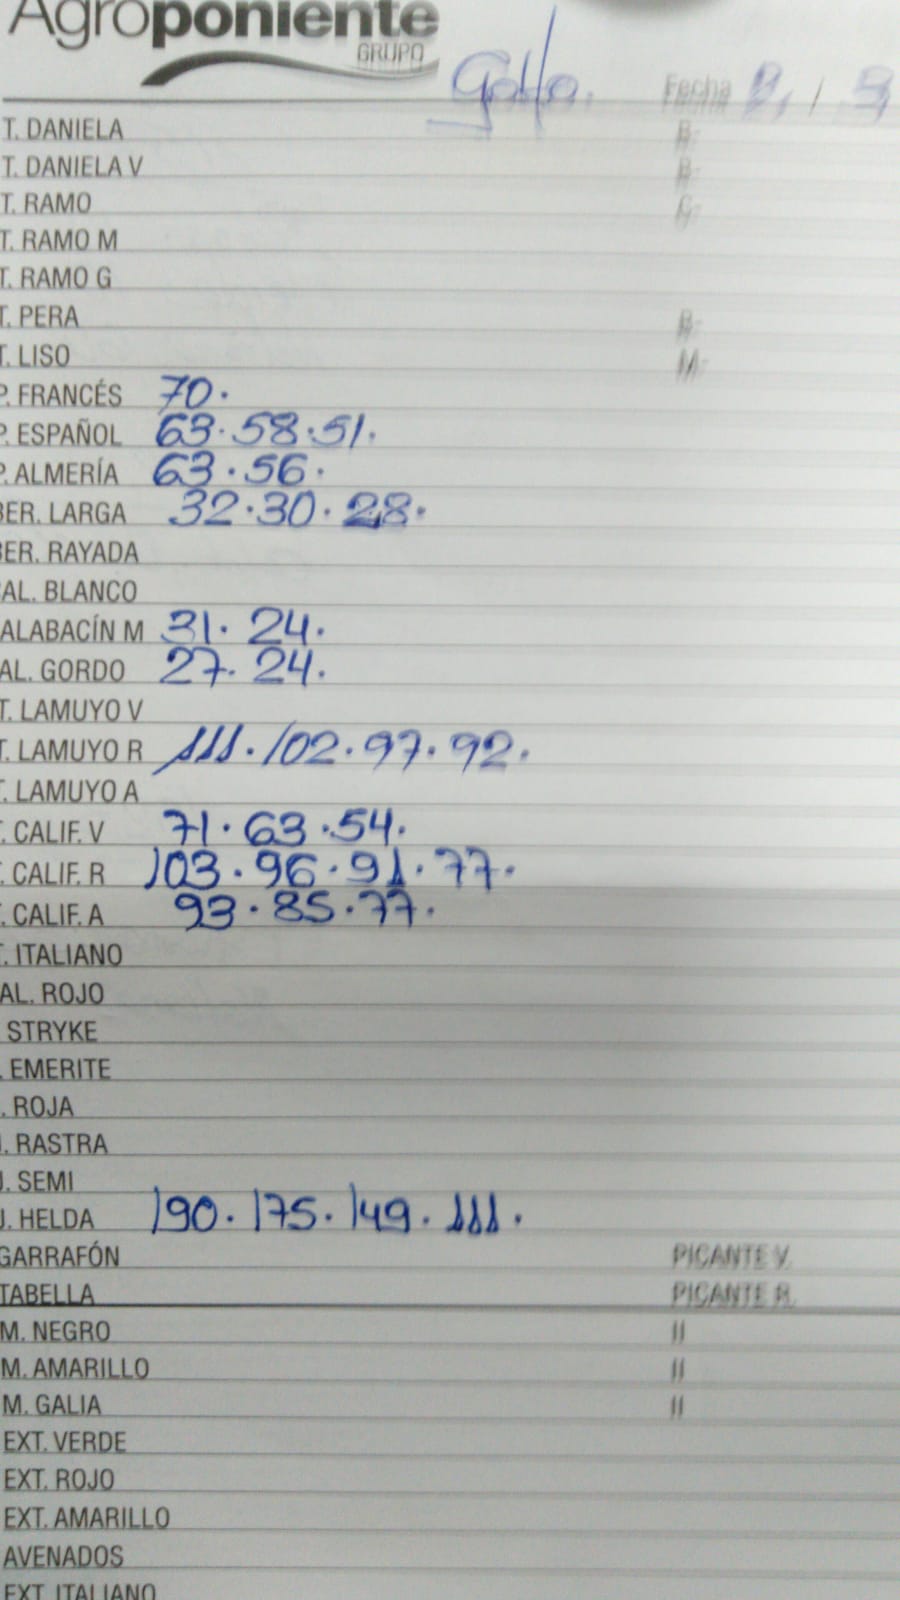 Agroponiente
GRUPO
Fecha
T. DANIELA B:
T. DANIELA V B:
T. RAMO G:
T. RAMO M
T. RAMO G
T. PERA B:
T. LISO M:
P. FRANCÉS 70.
P. ESPAÑOL 63.58.51.
P. ALMERÍA 63.56.
BER. LARGA 32.30.28.
BER. RAYADA
AL. BLANCO
ALABACÍN M 31. 24.
AL. GORDO 27. 24.
T. LAMUYO V
T. LAMUYO R 111.102.97.92.
T. LAMUYO A
. CALIF. V 71.63.54.
. CALIF. R 103.96.91.77.
. CALIF. A 93.85.77.
. ITALIANO
AL. ROJO
STRYKE
. EMERITE
. ROJA
. RASTRA
J. SEMI
J. HELDA 190.175.149.111.
GARRAFÓN PICANTE V.
TABELLA PICANTE R.
M. NEGRO "
M. AMARILLO "
M. GALIA "
EXT. VERDE
EXT. ROJO
EXT. AMARILLO
AVENADOS
EXT. ITALIANO